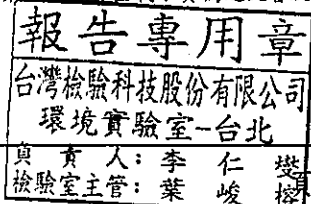 報告專用章
台灣檢驗科技股份有限公司
環境實驗室-台北
負責人：李仁燮
檢驗室主管：葉峻榕
頁